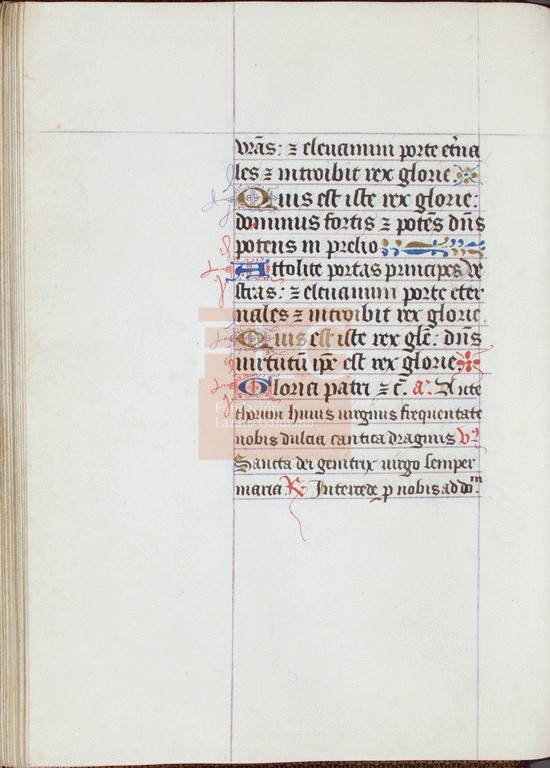 vr̃as: ⁊ eleuamini porte et̃na
les ⁊ introibit rex glorie.
Quis est iste rex glorie:
dominus fortis ⁊ potẽs dñs
potens in prelio
Attolite portas principes ve
stras: ⁊ eleuamini porte eter
nales ⁊ introibit rex glorie.
Quis est iste rex glẽ: dñs
uirtutũ ip̃e est rex glorie.
Gloria patri ⁊ c̃. a᷒. Ante
thorum huius uirginis frequentate
nobis dulcia cantica dragmis V᷒
Sancta dei genitrix uirgo semper
maria. R᷒ Intercede p nobis ad doᵐ.